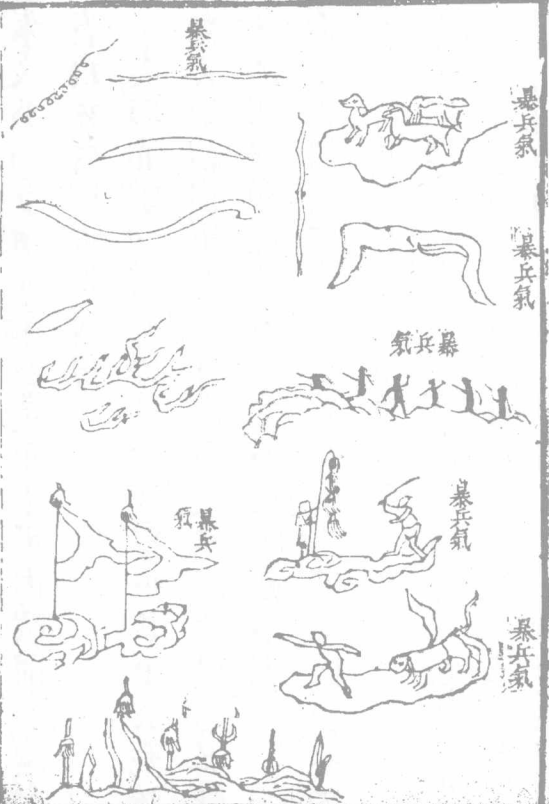 暴兵氣
暴兵氣
暴兵氣
暴兵氣
暴兵氣
暴兵氣
暴兵氣